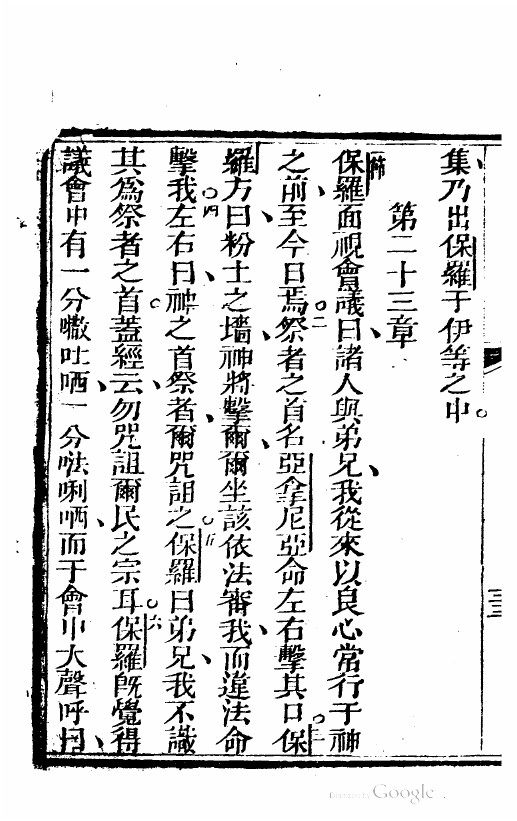 集乃出保羅于伊等之中。
第二十三章
保羅面視會議曰、諸人與弟兄、我從來以良心常行于神
之前、至今日焉。二祭者之首名亞拿尼亞命左右擊其口。三保
羅方曰、粉土之墻、神將擊爾、爾坐該依法審我、而違法命
擊我。四左右曰、神之首祭者、爾咒詛之。五保羅曰、弟兄、我不識
其為祭者之首。蓋經云、勿咒詛爾民之宗耳。六保羅旣覺得
議會中有一分𠹗吐哂、一分㕸唎哂、而于會中大聲呼曰、
三三
Digitized by Google